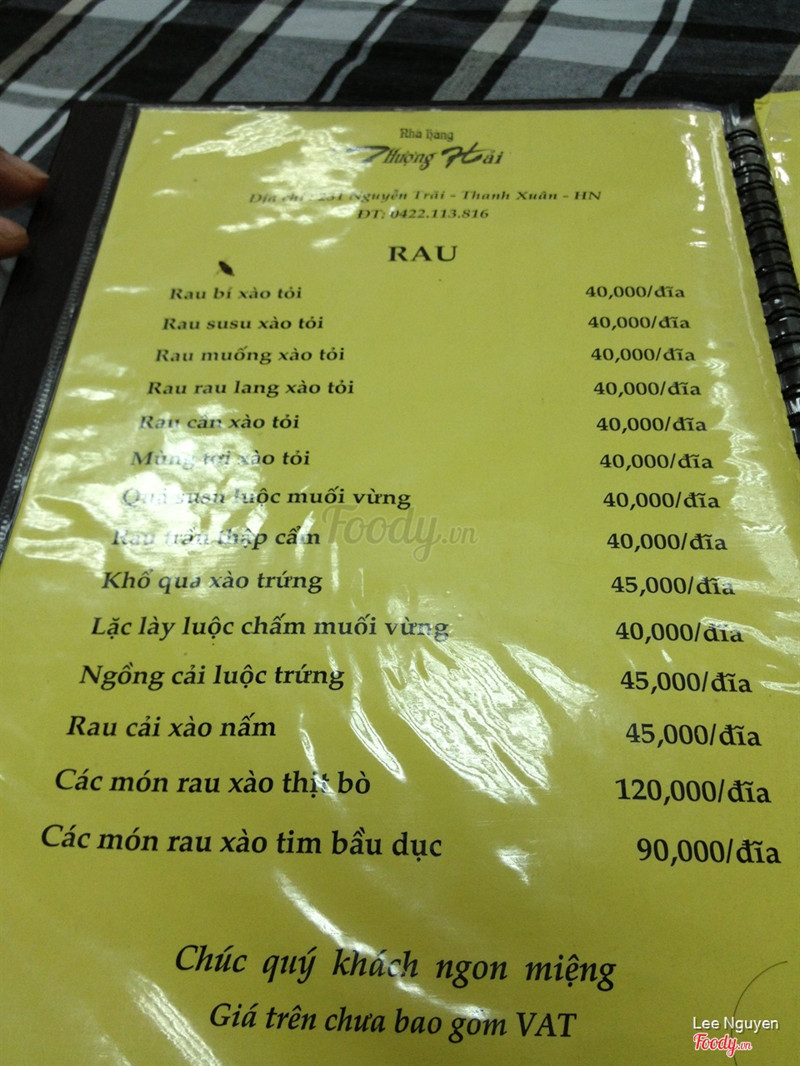 Nhà hàng
Thượng Hải
Địa chỉ: 231 Nguyễn Trãi - Thanh Xuân - HN
ĐT: 0422.113.816
RAU
Rau bí xào tỏi 40,000/đĩa
Rau susu xào tỏi 40,000/đĩa
Rau muống xào tỏi 40,000/đĩa
Rau rau lang xào tỏi 40,000/đĩa
Rau cần xào tỏi 40,000/đĩa
Mùng tơi xào tỏi 40,000/đĩa
Quả susu luộc muối vừng 40,000/đĩa
Rau trầu thập cẩm 40,000/đĩa
Khổ qua xào trứng 45,000/đĩa
Lặc lày luộc chấm muối vừng 40,000/đĩa
Ngồng cải luộc trứng 45,000/đĩa
Rau cải xào nấm 45,000/đĩa
Các món rau xào thịt bò 120,000/đĩa
Các món rau xào tim bầu dục 90,000/đĩa
Chúc quý khách ngon miệng
Giá trên chưa bao gồm VAT
Foody.vn
Lee Nguyen
Foody.vn